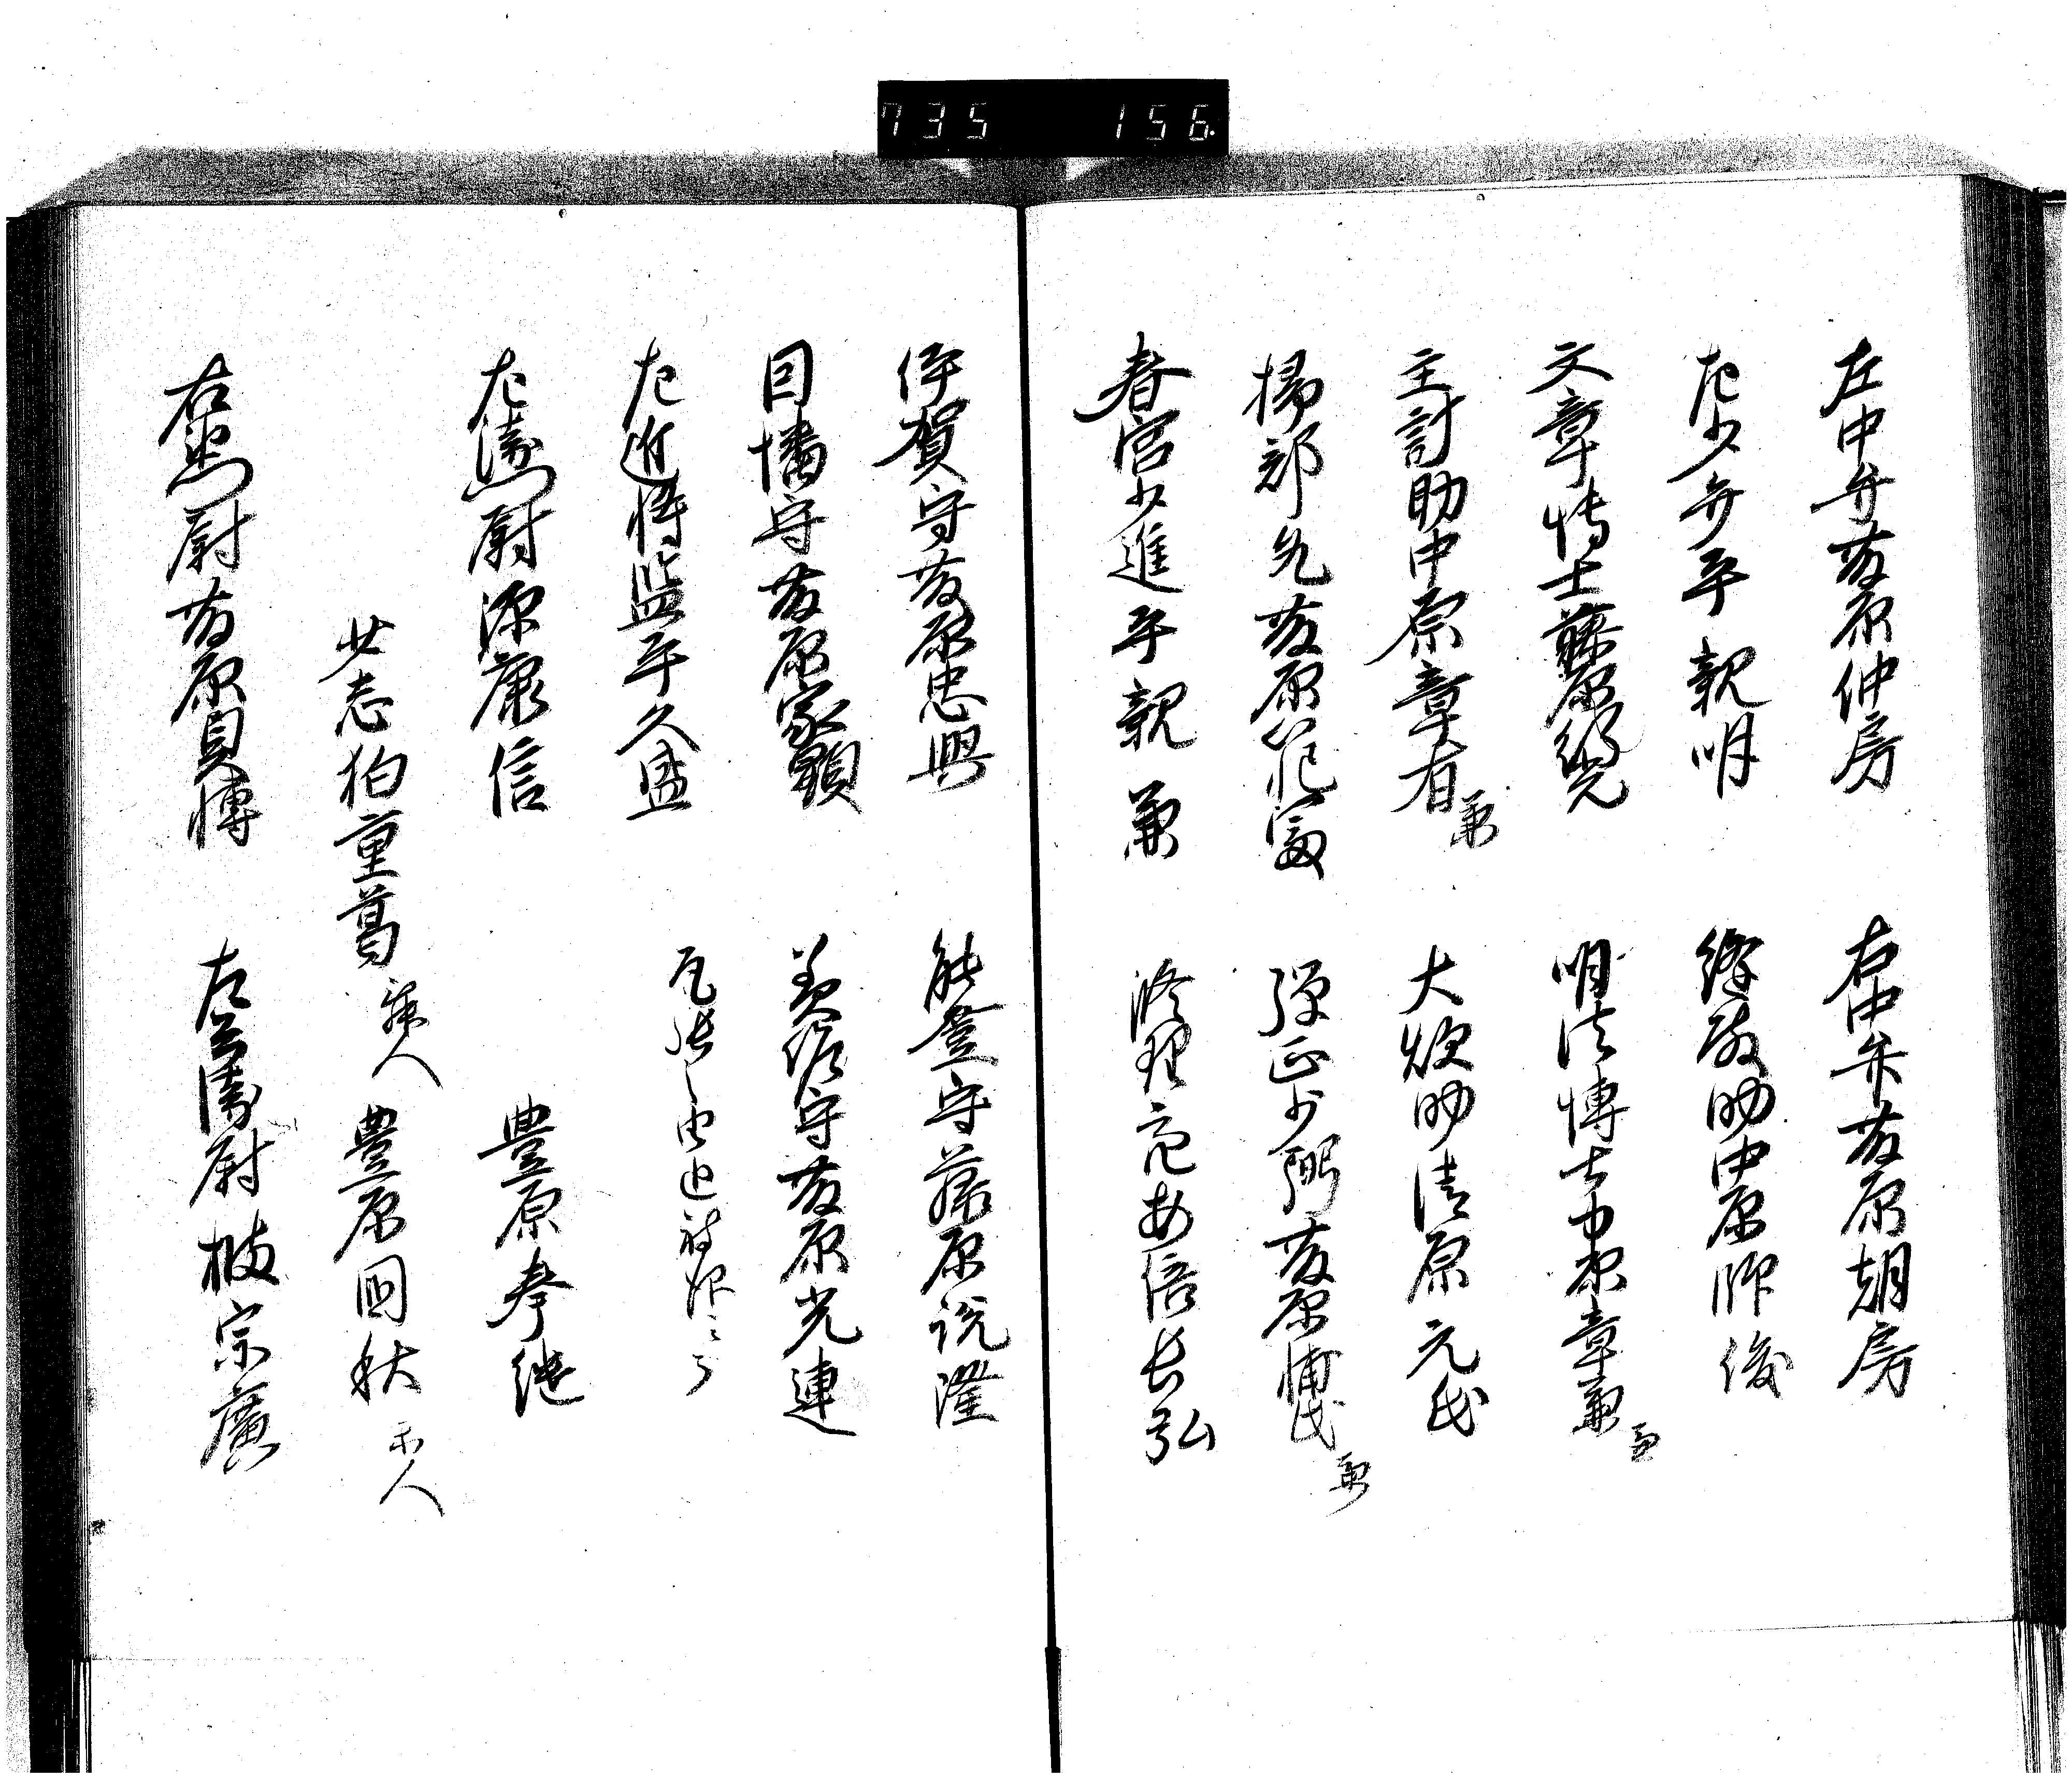 735 156
左中弁藤原仲房 右中弁藤原朝房
左少弁平親明 縫殿助中原師俊
文章博士藤原 明法博士中原章兼
主計助中原章有 兼 大炊助清原元氏
掃部允藤原範富 弾正少弼藤原博氏 兼
春宮少進平親兼 修理亮安倍長弘
伊賀守藤原忠興 能登守藤原説澄
因幡守藤原家顕 美作守藤原光連
左近将監平久盛
左衛門尉源康信 豊原孝継
少志狛重葛 舞人 豊原国秋
右衛門尉藤原貞博 左兵衛尉 宗広